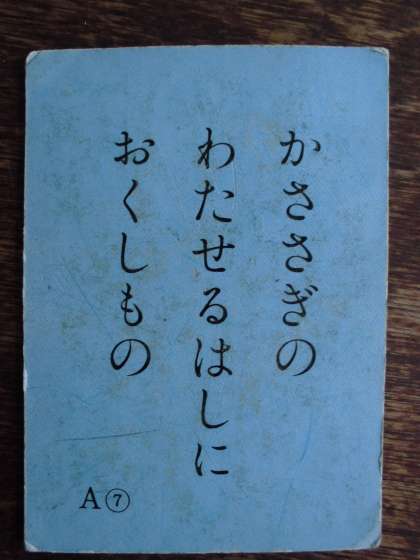 かささぎの
わたせるはしに
おくしもの
A⑦